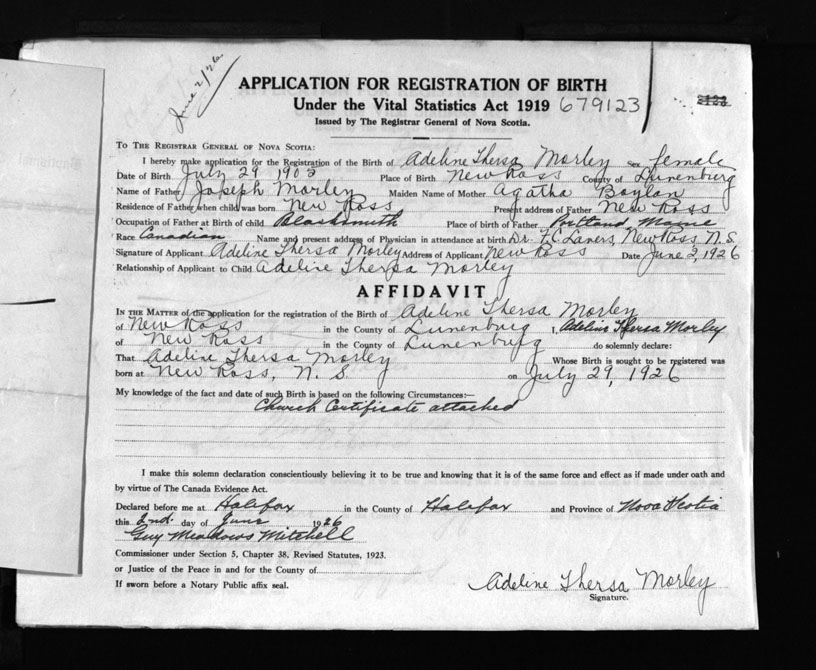 June 2/26.
APPLICATION FOR REGISTRATION OF BIRTH
Under the Vital Statistics Act 1919 679123
Issued by The Registrar General of Nova Scotia.
TO THE REGISTRAR GENERAL OF NOVA SCOTIA:
I hereby make application for the Registration of the Birth of Adeline Thersa Morley Sex female
Date of Birth July 29 1905 Place of Birth New Ross County of Lunenburg
Name of Father Joseph Morley Maiden Name of Mother Agatha Boylan
Residence of Father when child was born New Ross Present address of Father New Ross
Occupation of Father at Birth of child Blacksmith Place of birth of Father Portland, Maine
Race Canadian Name and present address of Physician in attendance at birth Dr. F.C. Lavers, New Ross N.S.
Signature of Applicant Adeline Thersa Morley Address of Applicant New Ross Date June 2, 1926
Relationship of Applicant to Child Adeline Thersa Morley
AFFIDAVIT
IN THE MATTER of the application for the registration of the Birth of Adeline Thersa Morley
of New Ross in the County of Lunenburg I, Adeline Thersa Morley
of New Ross in the County of Lunenburg do solemnly declare:
That Adeline Thersa Morley Whose Birth is sought to be registered was
born at New Ross, N. S. on July 29, 1926
My knowledge of the fact and date of such Birth is based on the following Circumstances:—
Church Certificate attached
I make this solemn declaration conscientiously believing it to be true and knowing that it is of the same force and effect as if made under oath and
by virtue of The Canada Evidence Act.
Declared before me at Halifax in the County of Halifax and Province of Nova Scotia
this 2nd. day of June 1926
Guy Meadows Mitchell
Commissioner under Section 5, Chapter 38, Revised Statutes, 1923.
or Justice of the Peace in and for the County of
If sworn before a Notary Public affix seal.
Adeline Thersa Morley
Signature.